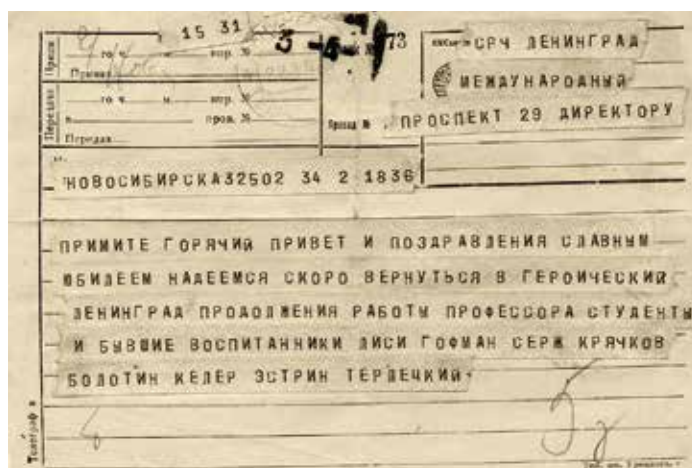 15 31
73
Прием
го ч. м. пр. №
Принял
СРЧ ЛЕНИНГРАД
МЕЖДУНАРОДНЫЙ
ПРОСПЕКТ 29 ДИРЕКТОРУ
Передача
го ч. м. пров. №
Передал
НОВОСИБИРСКА32502 34 2 1836
ПРИМИТЕ ГОРЯЧИЙ ПРИВЕТ И ПОЗДРАВЛЕНИЯ СЛАВНЫМ
ЮБИЛЕЕМ НАДЕЕМСЯ СКОРО ВЕРНУТЬСЯ В ГЕРОИЧЕСКИЙ
ЛЕНИНГРАД ПРОДОЛЖЕНИЯ РАБОТЫ ПРОФЕССОРА СТУДЕНТЫ
И БЫВШИЕ ВОСПИТАННИКИ ЛИСИ ГОФМАН СЕРК КРЯЧКОВ
БОЛОТИН КЕЛЕР ЭСТРИН ТЕРЛЕЦКИЙ
Телеграф в